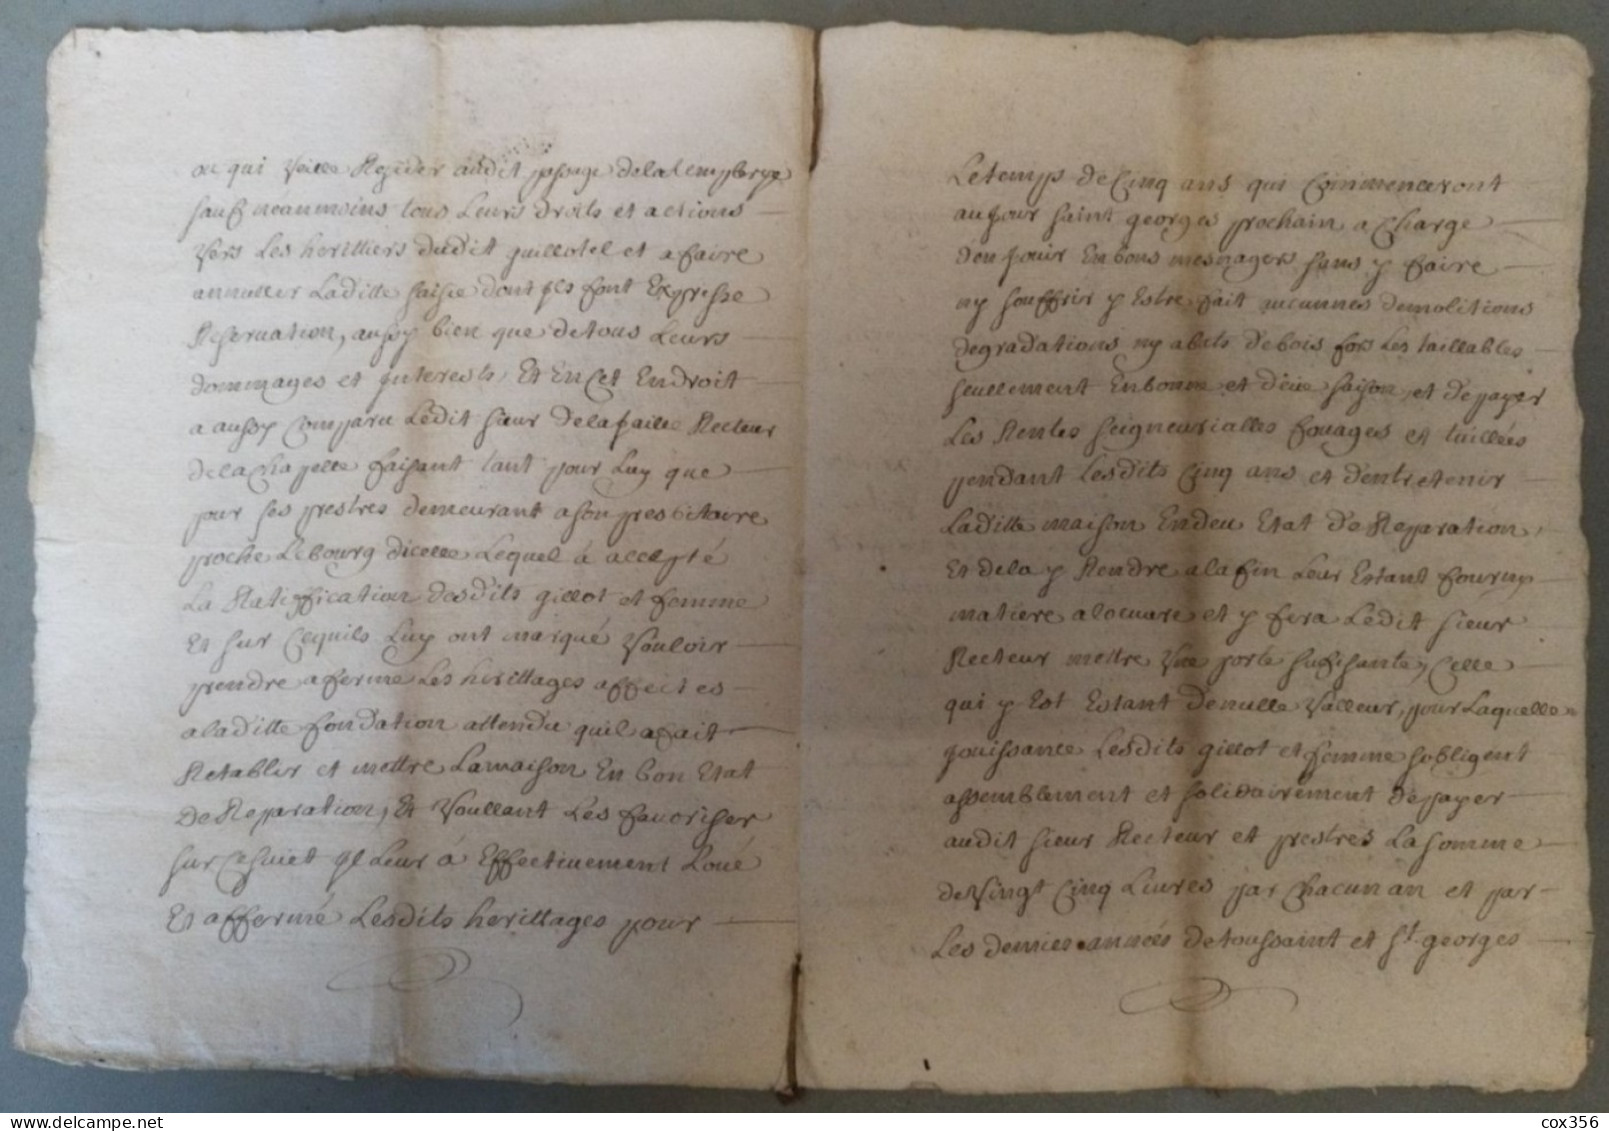 ou qui Veille Rezider audit passage
sauf neanmoins tous Leurs droits et actions
Vers Les herittiers dudit guillotel et a faire
annuller Laditte saisie dont jls font Expresse
Reservation, aussy bien que detous Leurs
dommages et jnterests, Et En Cet Endroit
a aussy Comparu Ledit sieur delasaille Recteur
delachapelle faisant tant pour Luy que
pour ses prestres demeurant ason presbitaire
proche Lebourg dicelle Lequel á accepté
La Ratiffication desdits gillot et femme
Et sur Cequils Luy ont marqué Vouloir
prendre aferme Les herittages affectes
aladitte fondation attendu quil afait
Retablir et mettre Lamaison En bon Etat
De Reparation, Et Voullant Les favoriser
sur Cesujet jl Leur á Effectivement Loué
Et affermé Lesdits herittages pour
Letemps de Cinq ans qui Commenceront
aujour saint georges prochain a Charge
den jouir Enbons mesnagers sans y faire
ny souffrir y Estre fait aucunnes demolitions
degradations ny abats debois fors Les taillables
seullement Enbonne et deüe saison, et depayer
Les Rentes seigneurialles fouages et taillées
pendant Lesdits Cinq ans et dentretenir
Laditte maison Endeu Etat de Reparation,
Et dela y Rendre alafin Leur Estant fourny
matiere alocuvre et y fera Ledit sieur
Recteur mettre Vne porte sufisante, Celle
qui y Est Estant denulle Valleur, pour Laquelle
jouissance Lesdits gillot et femme sobligent
assemblement et solidairement depayer
audit sieur Recteur et prestres Lasomme
deVingt Cinq Livres par Chacun an et par
Les demies années detoussaint et st. georges
cox356